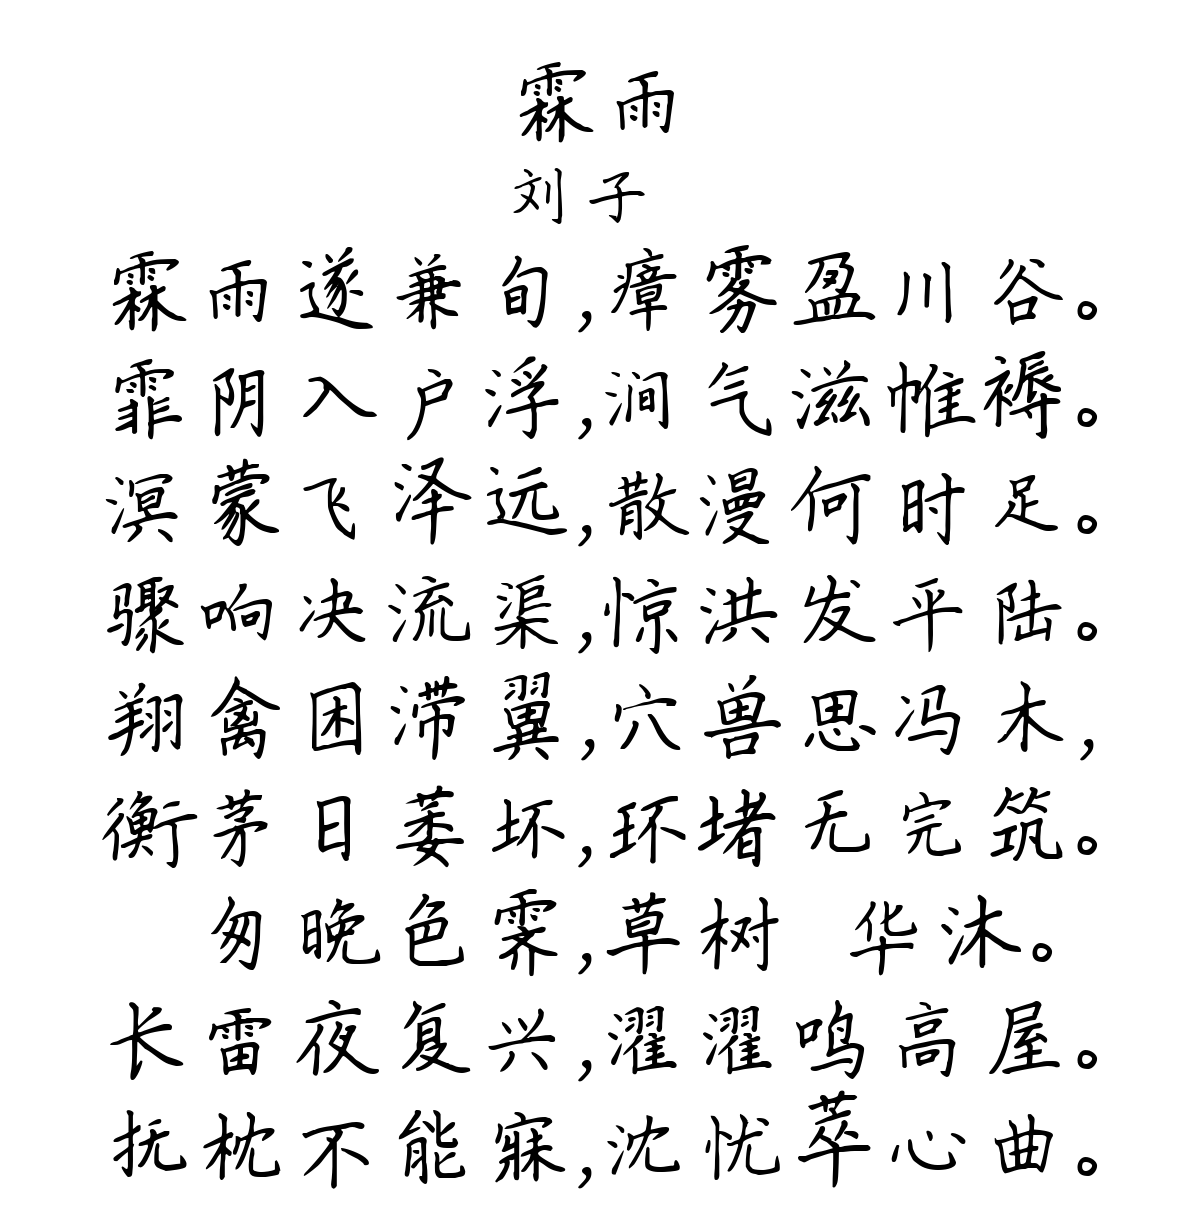 霖雨
刘子
霖雨遂兼旬,瘴雾盈川谷。
霏阴入户浮,涧气滋帷褥。
溟蒙飞泽远,散漫何时足。
骤响决流渠,惊洪发平陆。
翔禽困滞翼,穴兽思冯木,
衡茅日萎坏,环堵无完筑。
匆晚色霁,草树 华沐。
长雷夜复兴,濯濯鸣高屋。
抚枕不能寐,沈忧萃心曲。